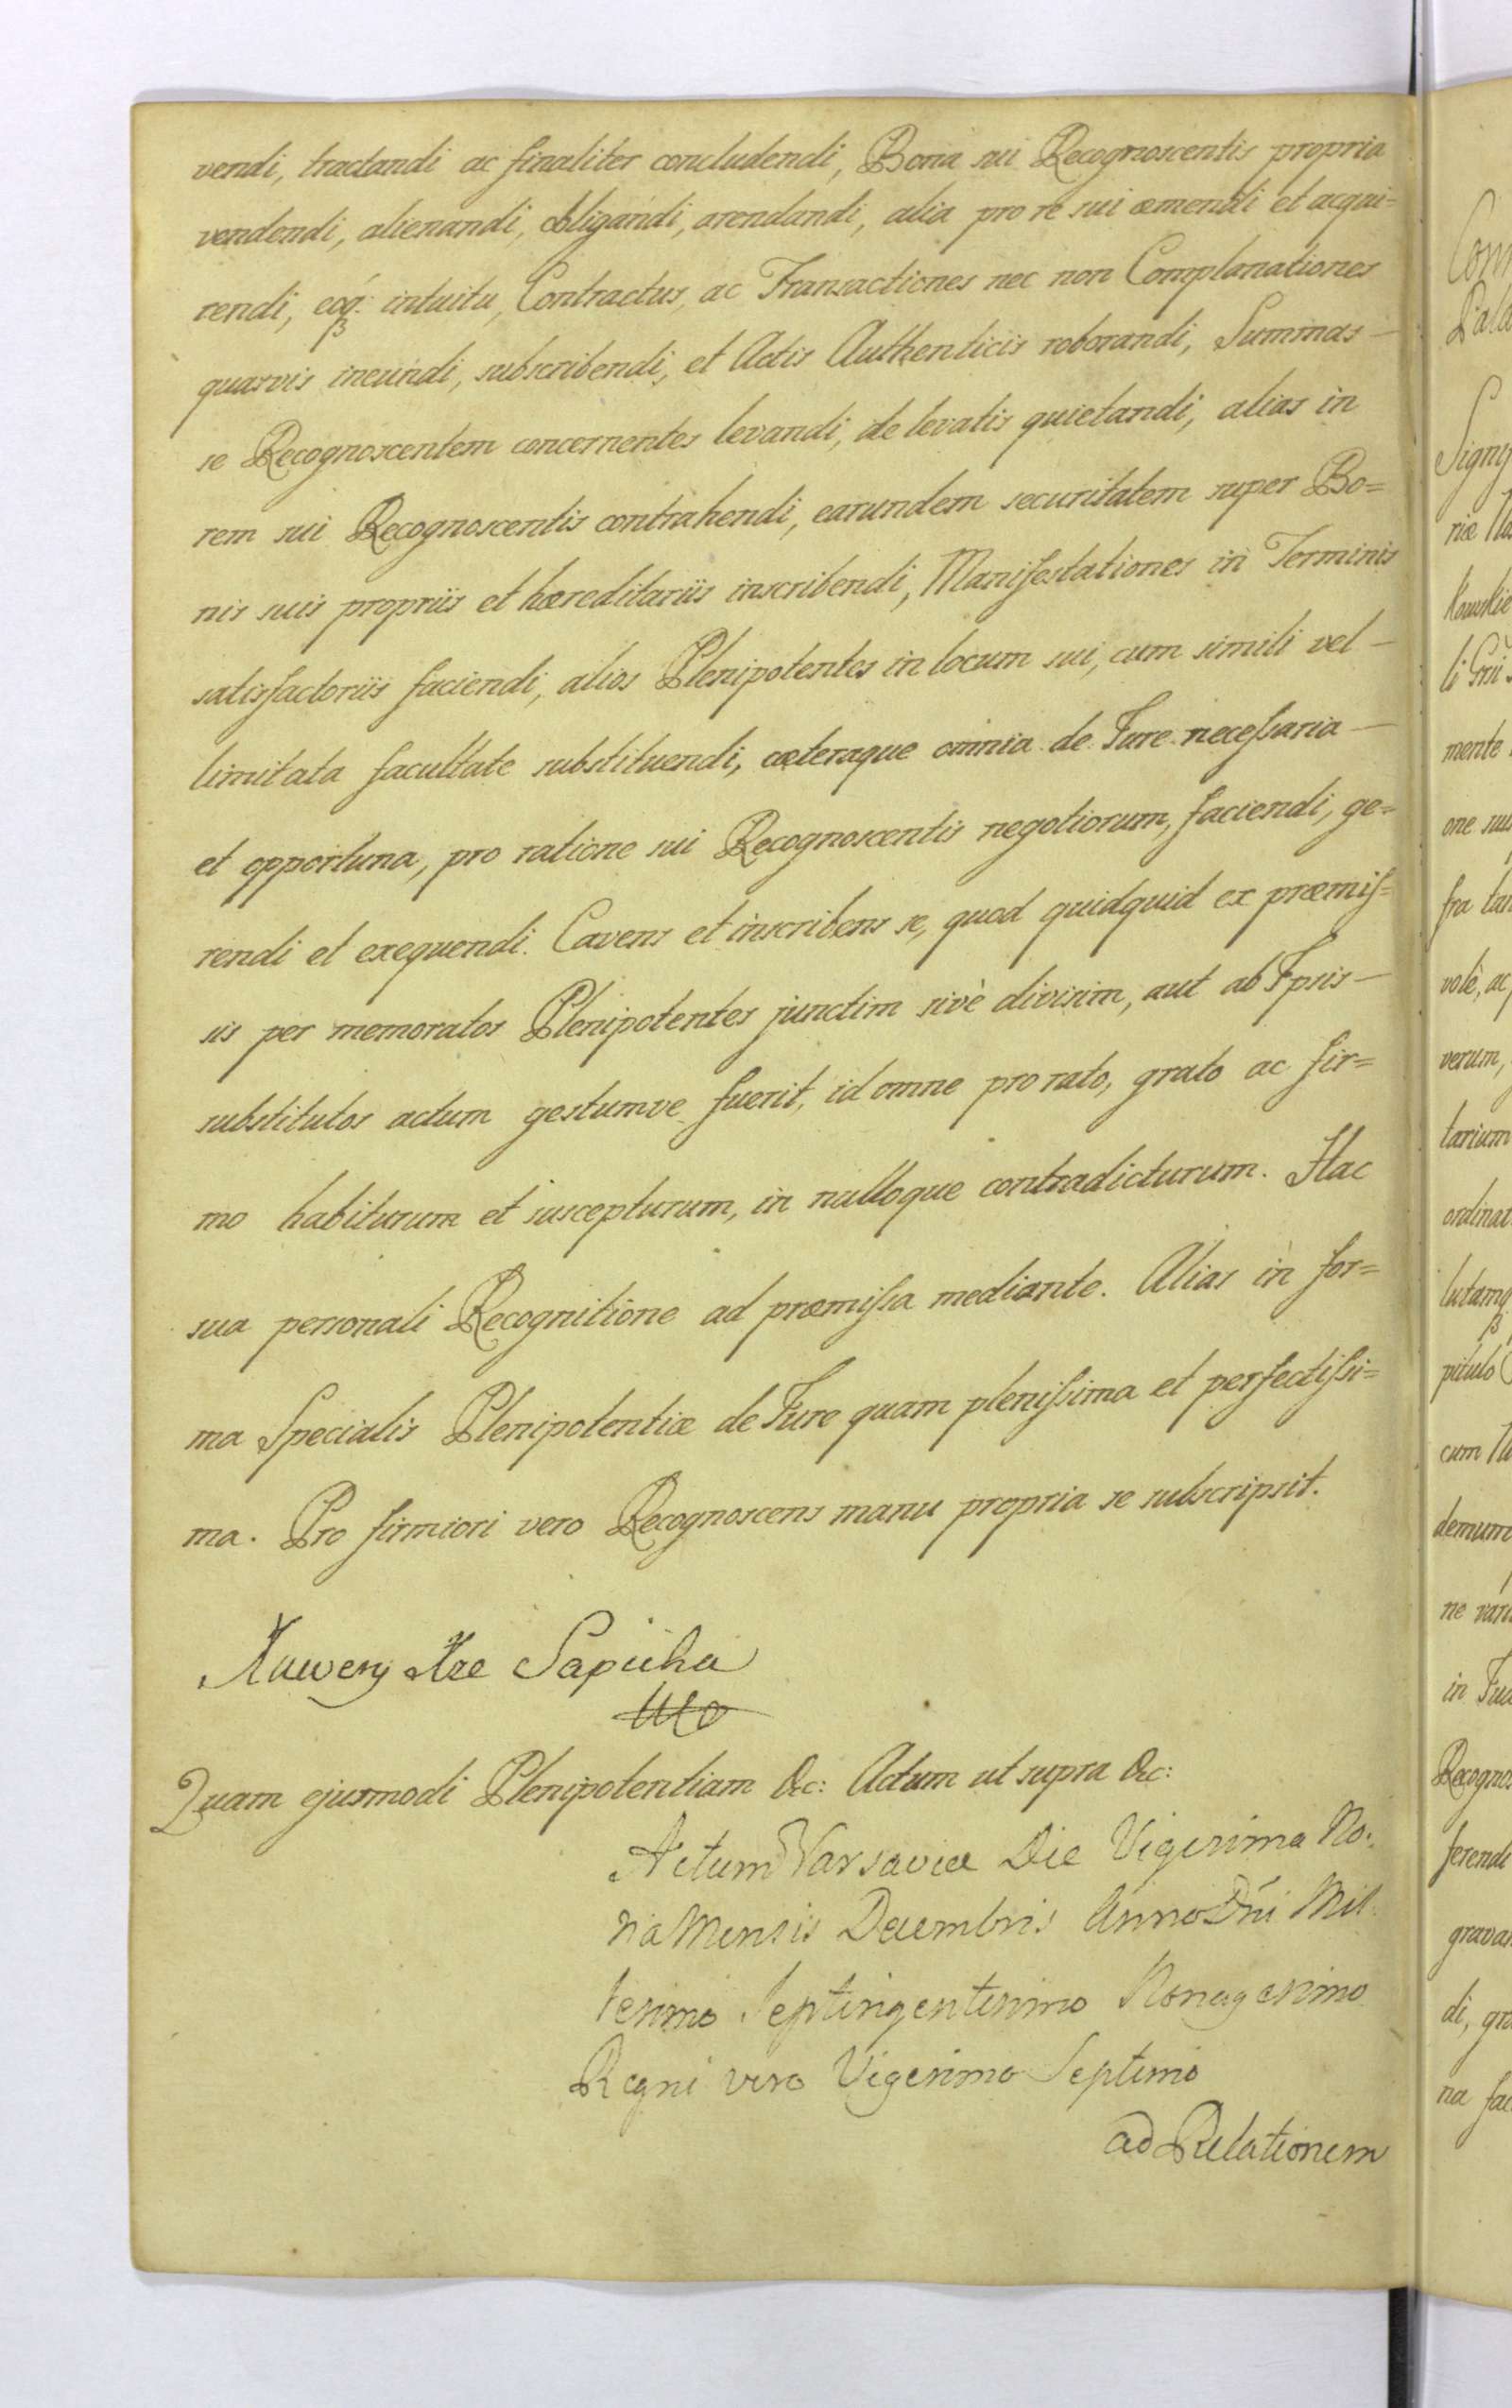 vendi, tractandi ac finaliter concludendi, Bona sui Recognoscentis propria
vendendi, alienandi, obligandi, arendandi, alia pro re sui æmendi et acqui=
rendi, eoq: intuitu, Contractus, ac Transactiones nec non Complanationes
quasvis ineundi, subscribendi, et Actis Authenticis roborandi, Summas —
se Recognoscentem concernentes levandi, de levatis quietandi, alias in
rem sui Recognoscentis contrahendi, earundem securitatem super Bo=
nis suis propriis et hæreditariis inscribendi, Manifestationes in Terminis
satisfactoriis faciendi, alios Plenipotentes in locum sui, cum simili vel —
limitata facultate substituendi, cæteraque omnia de Jure necessaria —
et opportuna, pro ratione sui Recognoscentis negotiorum, faciendi, ge=
rendi et exequendi. Cavens et inscribens se, quod quidquid ex præmis=
sis per memoratos Plenipotentes junctim sivè divisim, aut ab Ipsis —
substitutos actum gestumve fuerit, id omne pro rato, grato ac fir=
mo habiturum et suscepturum, in nulloque contradicturum. Hac
sua personali Recognitione ad præmissa mediante. Alias in for=
ma Specialis Plenipotentiæ de Jure quam plenissima et perfectissi=
ma. Pro firmiori vero Recognoscens manu propria se subscripsit.
Xawery Xże Sapieha
Quam ejusmodi Plenipotentiam &c: Actum ut supra &c:
Actum Varsaviæ Die Vigesima No:
na Mensis Decembris Anno Dñi Mil
lesimo Septingentesimo Nonagesimo
Regni vero Vigesimo Septimo
ad Relationem